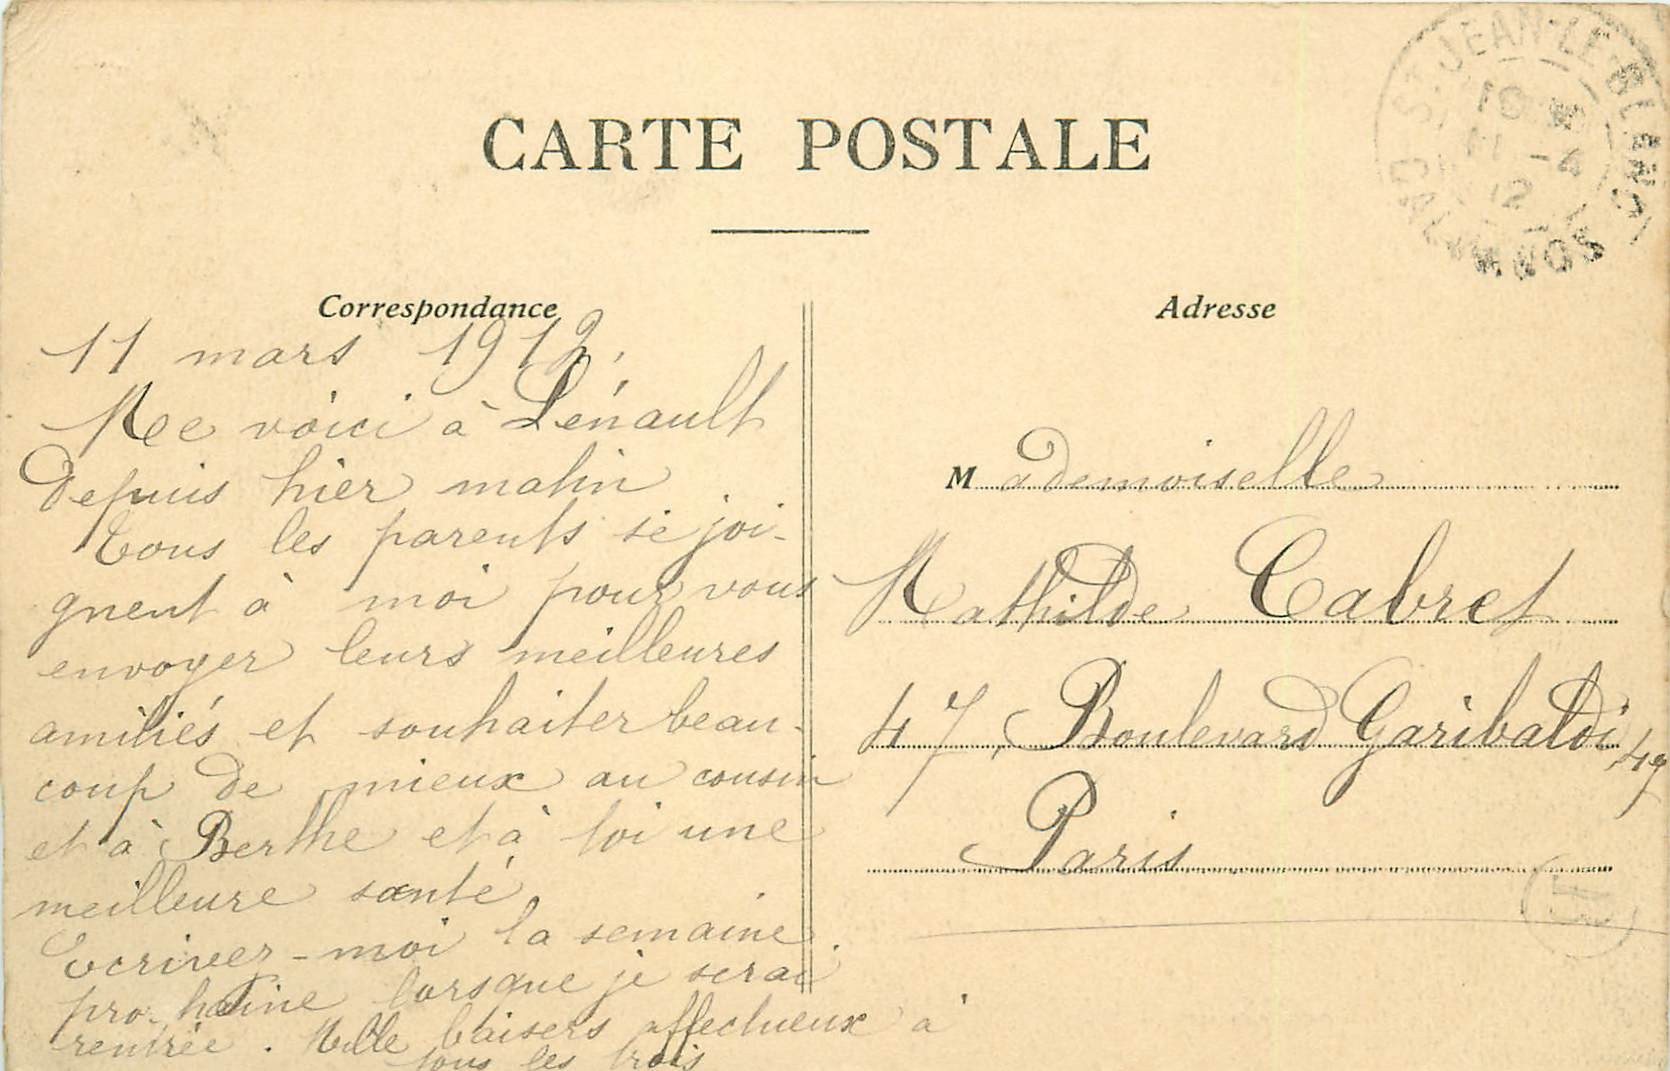 CARTE POSTALE
ST-JEAN-LE-BLANC
CALVADOS
Correspondance
11 mars 1912.
Me voici à Lénault
depuis hier matin
Tous les parents se joi-
gnent à moi pour vous
envoyer leurs meilleures
amitiés et souhaiter beau-
coup de mieux au cousin
et à Berthe et à toi une
meilleure santé
Ecrivez-moi la semaine
prochaine lorsque je serai
rentrée. Mille baisers affectueux à
tous les trois
Adresse
Mademoiselle
Mathilde Cabret
47, Boulevard Garibaldi, 47
Paris